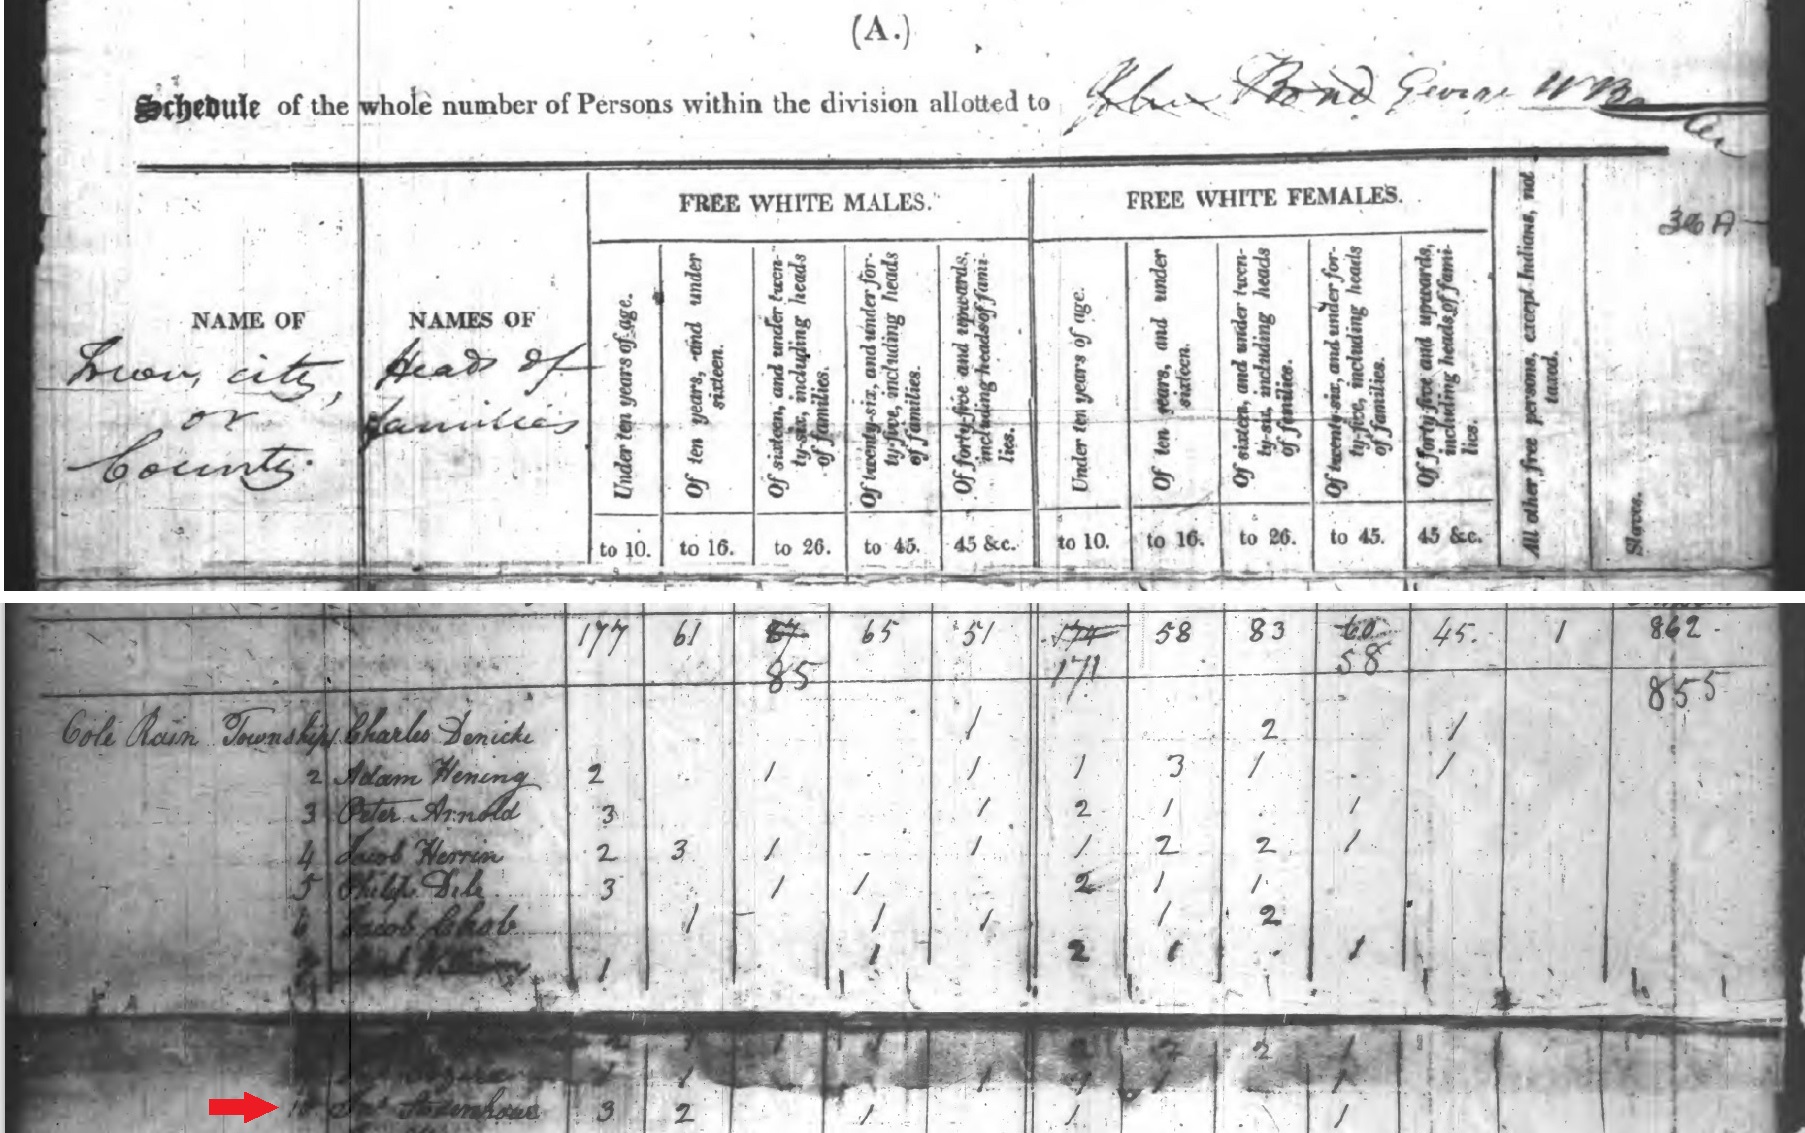 (A.)
Schedule of the whole number of Persons within the division allotted to John Bond George W B
36 A
FREE WHITE MALES. FREE WHITE FEMALES.
NAME OF
Town, city,
or
County.
NAMES OF
Head of
families
Under ten years of age.
Of ten years, and under sixteen.
Of sixteen, and under twen-
ty-six, including heads
of families.
Of twenty-six, and under for-
ty-five, including heads
of families.
Of forty-five and upwards,
including heads of fami-
lies.
Under ten years of age.
Of ten years, and under sixteen.
Of sixteen, and under twen-
ty-six, including heads
of families.
Of twenty-six, and under for-
ty-five, including heads
of families.
Of forty-five and upwards,
including heads of fami-
lies.
All other free persons, except Indians, not
taxed.
Slaves.
to 10. to 16. to 26. to 45. 45 &c. to 10. to 16. to 26. to 45. 45 &c.
177 61 87 65 51 174 58 83 60 45. 1 862
85 171 58 855
Cole Rain Township Charles Denicke 1 2 1
2 Adam Hening 2 1 1 1 3 1 1
3 Peter Arnold 3 1 2 1 1
4 Jacob Herrin 2 3 1 1 1 2 2 1
5 Philip Dile 3 1 1 2 1 1
6 Jacob 1 1 1 1 2
1 1 2 1 1
2 1
10 Jno 3 2 1 1 1